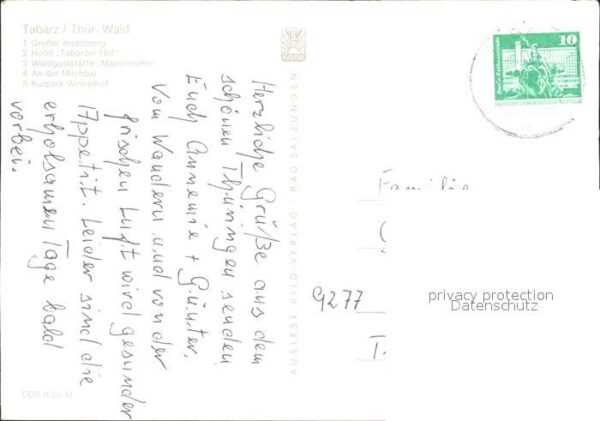 Tabarz / Thür. Wald
1 Großer Inselsberg
2 Hotel „Tabarzer Hof“
3 Waldgaststätte „Massemühle“
4 An der Milchbar
5 Kurpark Winkelhof
Herzliche Grüße aus dem
schönen Thüringen senden
Euch Annemie + Günter.
Vom Wandern und von der
frischen Luft wird gesunder
Appetit. Leider sind die
erholsamen Tage bald
vorbei.
DDR 0,20 M
AUSLESE-BILD-VERLAG · BAD SALZUNGEN
10
Familie
9277
privacy protection
Datenschutz